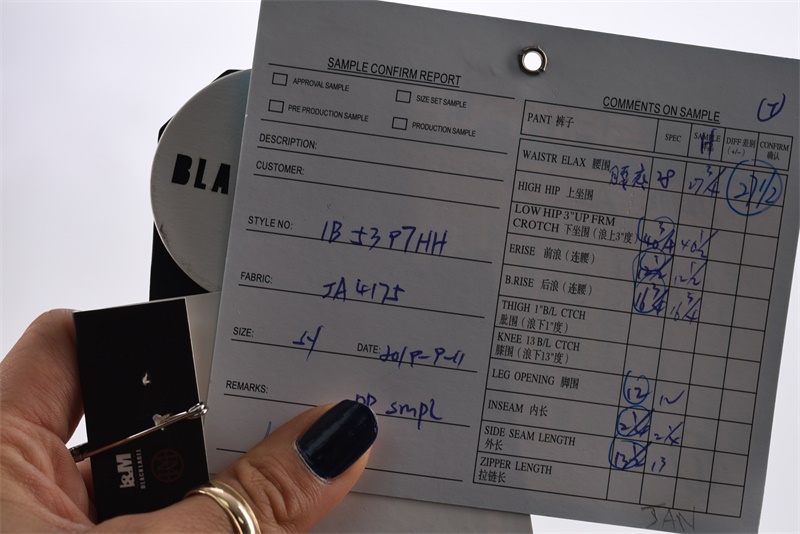 SAMPLE CONFIRM REPORT
APPROVAL SAMPLE
SIZE SET SAMPLE
PRE PRODUCTION SAMPLE
PRODUCTION SAMPLE
DESCRIPTION:
CUSTOMER:
STYLE NO: 1B5397HH
FABRIC: JA4175
SIZE:
DATE: 2019-9-11
REMARKS:
PP smpl
COMMENTS ON SAMPLE
PANT 裤子 SPEC SAMPLE DIFF 差别 (+/-) CONFIRM 确认
WAISTR ELAX 腰围 28 27 3/4 27 1/2
HIGH HIP 上坐围
LOW HIP 3"UP FRM
CROTCH 下坐围（浪上3"度） 40 1/2
ERISE 前浪（连腰） 12 1/2
B.RISE 后浪（连腰） 16 3/4
THIGH 1"B/L CTCH
髀围（浪下1"度）
KNEE 13 B/L CTCH
膝围（浪下13"度）
LEG OPENING 脚围 12 12
INSEAM 内长
SIDE SEAM LENGTH
外长 13
ZIPPER LENGTH
拉链长
JAN
BLA
I&M
BLACK LABEL